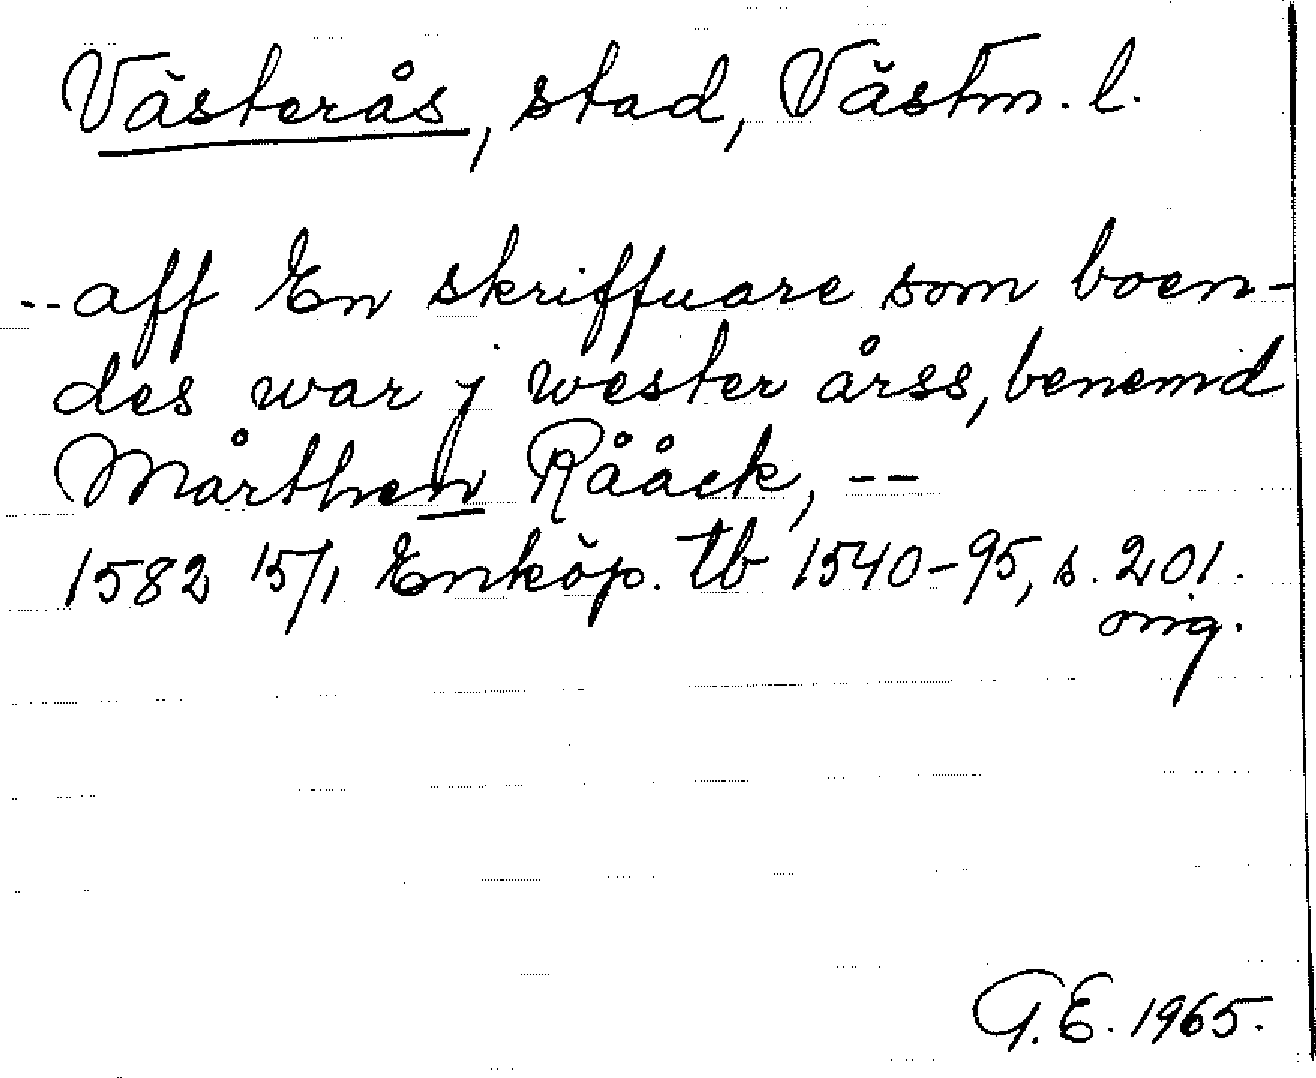 Västerås, stad, Västm. l.
-- aff En skriffuare som boen-
des war j wester årss, benemd
Mårthen Rååck, --
1582 15/1 Enköp. tb 1540-95, s. 201.
orig.
G.E. 1965.